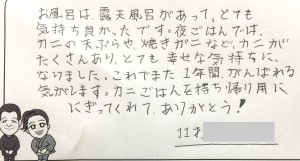 お風呂は、露天風呂があって、とても
気持ち良かったです。夜ごはんでは、
カニの天ぷらや、焼きガニなど、カニが
たくさんあり、とても幸せな気持ちに
なりました。これでまた1年間、がんばれる
気がします。カニごはんを持ち帰り用に
にぎってくれて、ありがとう!
11才